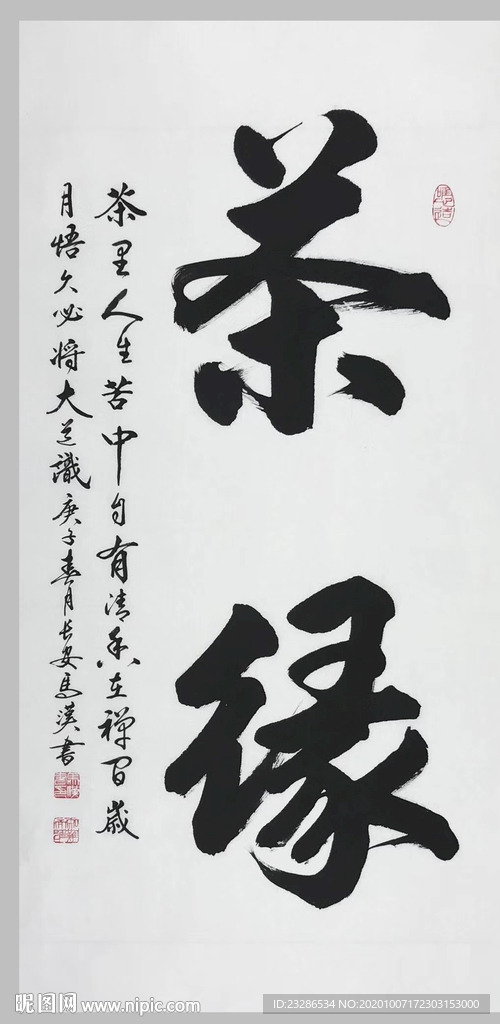 茶缘
茶里人生苦中自有清香在禅间岁
月悟久必将大道識庚子春月长安馬漢書
昵图网 www.nipic.com
ID:23286534 NO:20201007172303153000